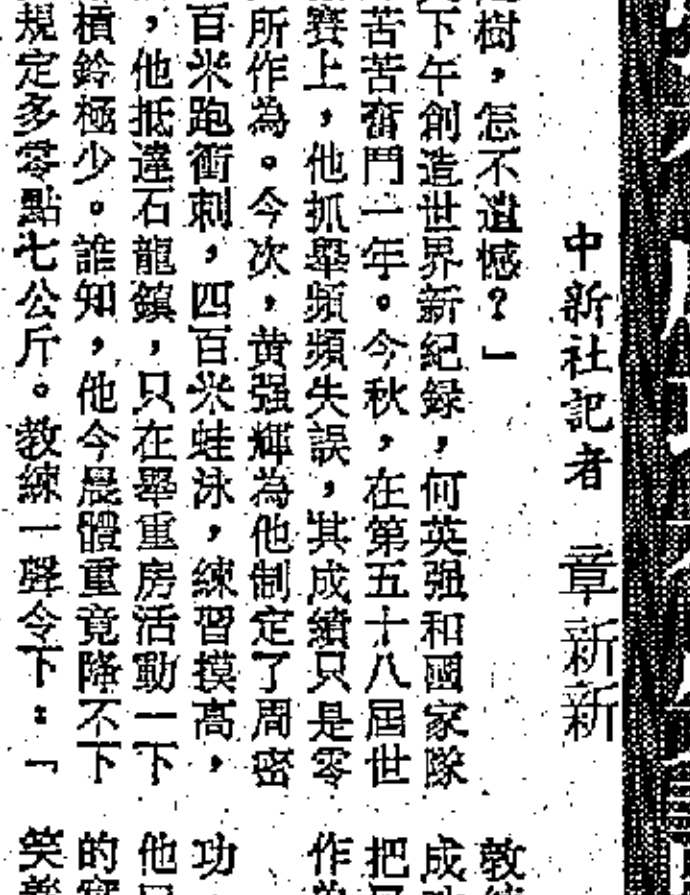 中新社記者 章新新
樹，怎不遺憾？」
下午創造世界新紀録，何英强和國家隊
苦苦奮鬥一年。今秋，在第五十八屆世
賽上，他抓舉頻頻失誤，其成績只是零
所作為。今次，黄强輝為他制定了周密
百米跑衝刺，四百米蛙泳，練習摸高，
，他抵達石龍鎮，只在舉重房活動一下
槓鈴極少。誰知，他今晨體重竟降不下
規定多零點七公斤。教練一聲令下：「
教
成
把
作
功
他
的
笑